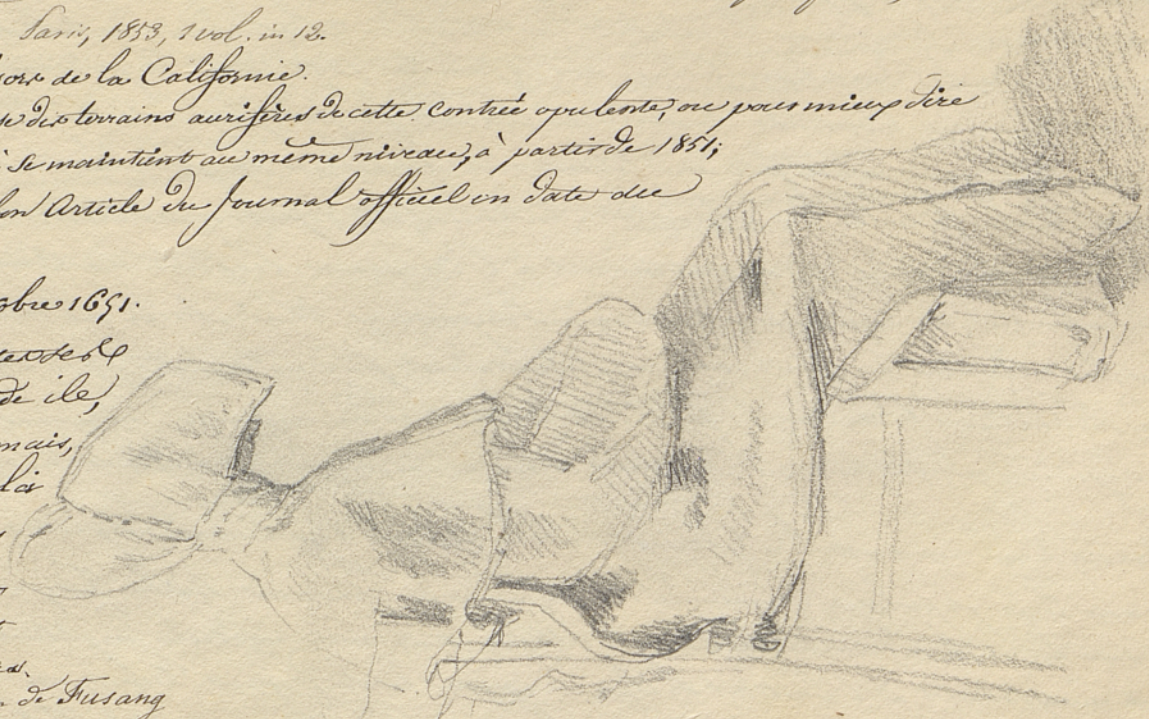 Paris, 1853, 1 vol. in 12.
de la Californie.
des terrains aurifères de cette contrée opulente, ou pour mieux dire
se maintient au même niveau, à partir de 1851;
Article du Journal officiel en date du
obre 1651.
de ile,
mais,
là
de Fusang